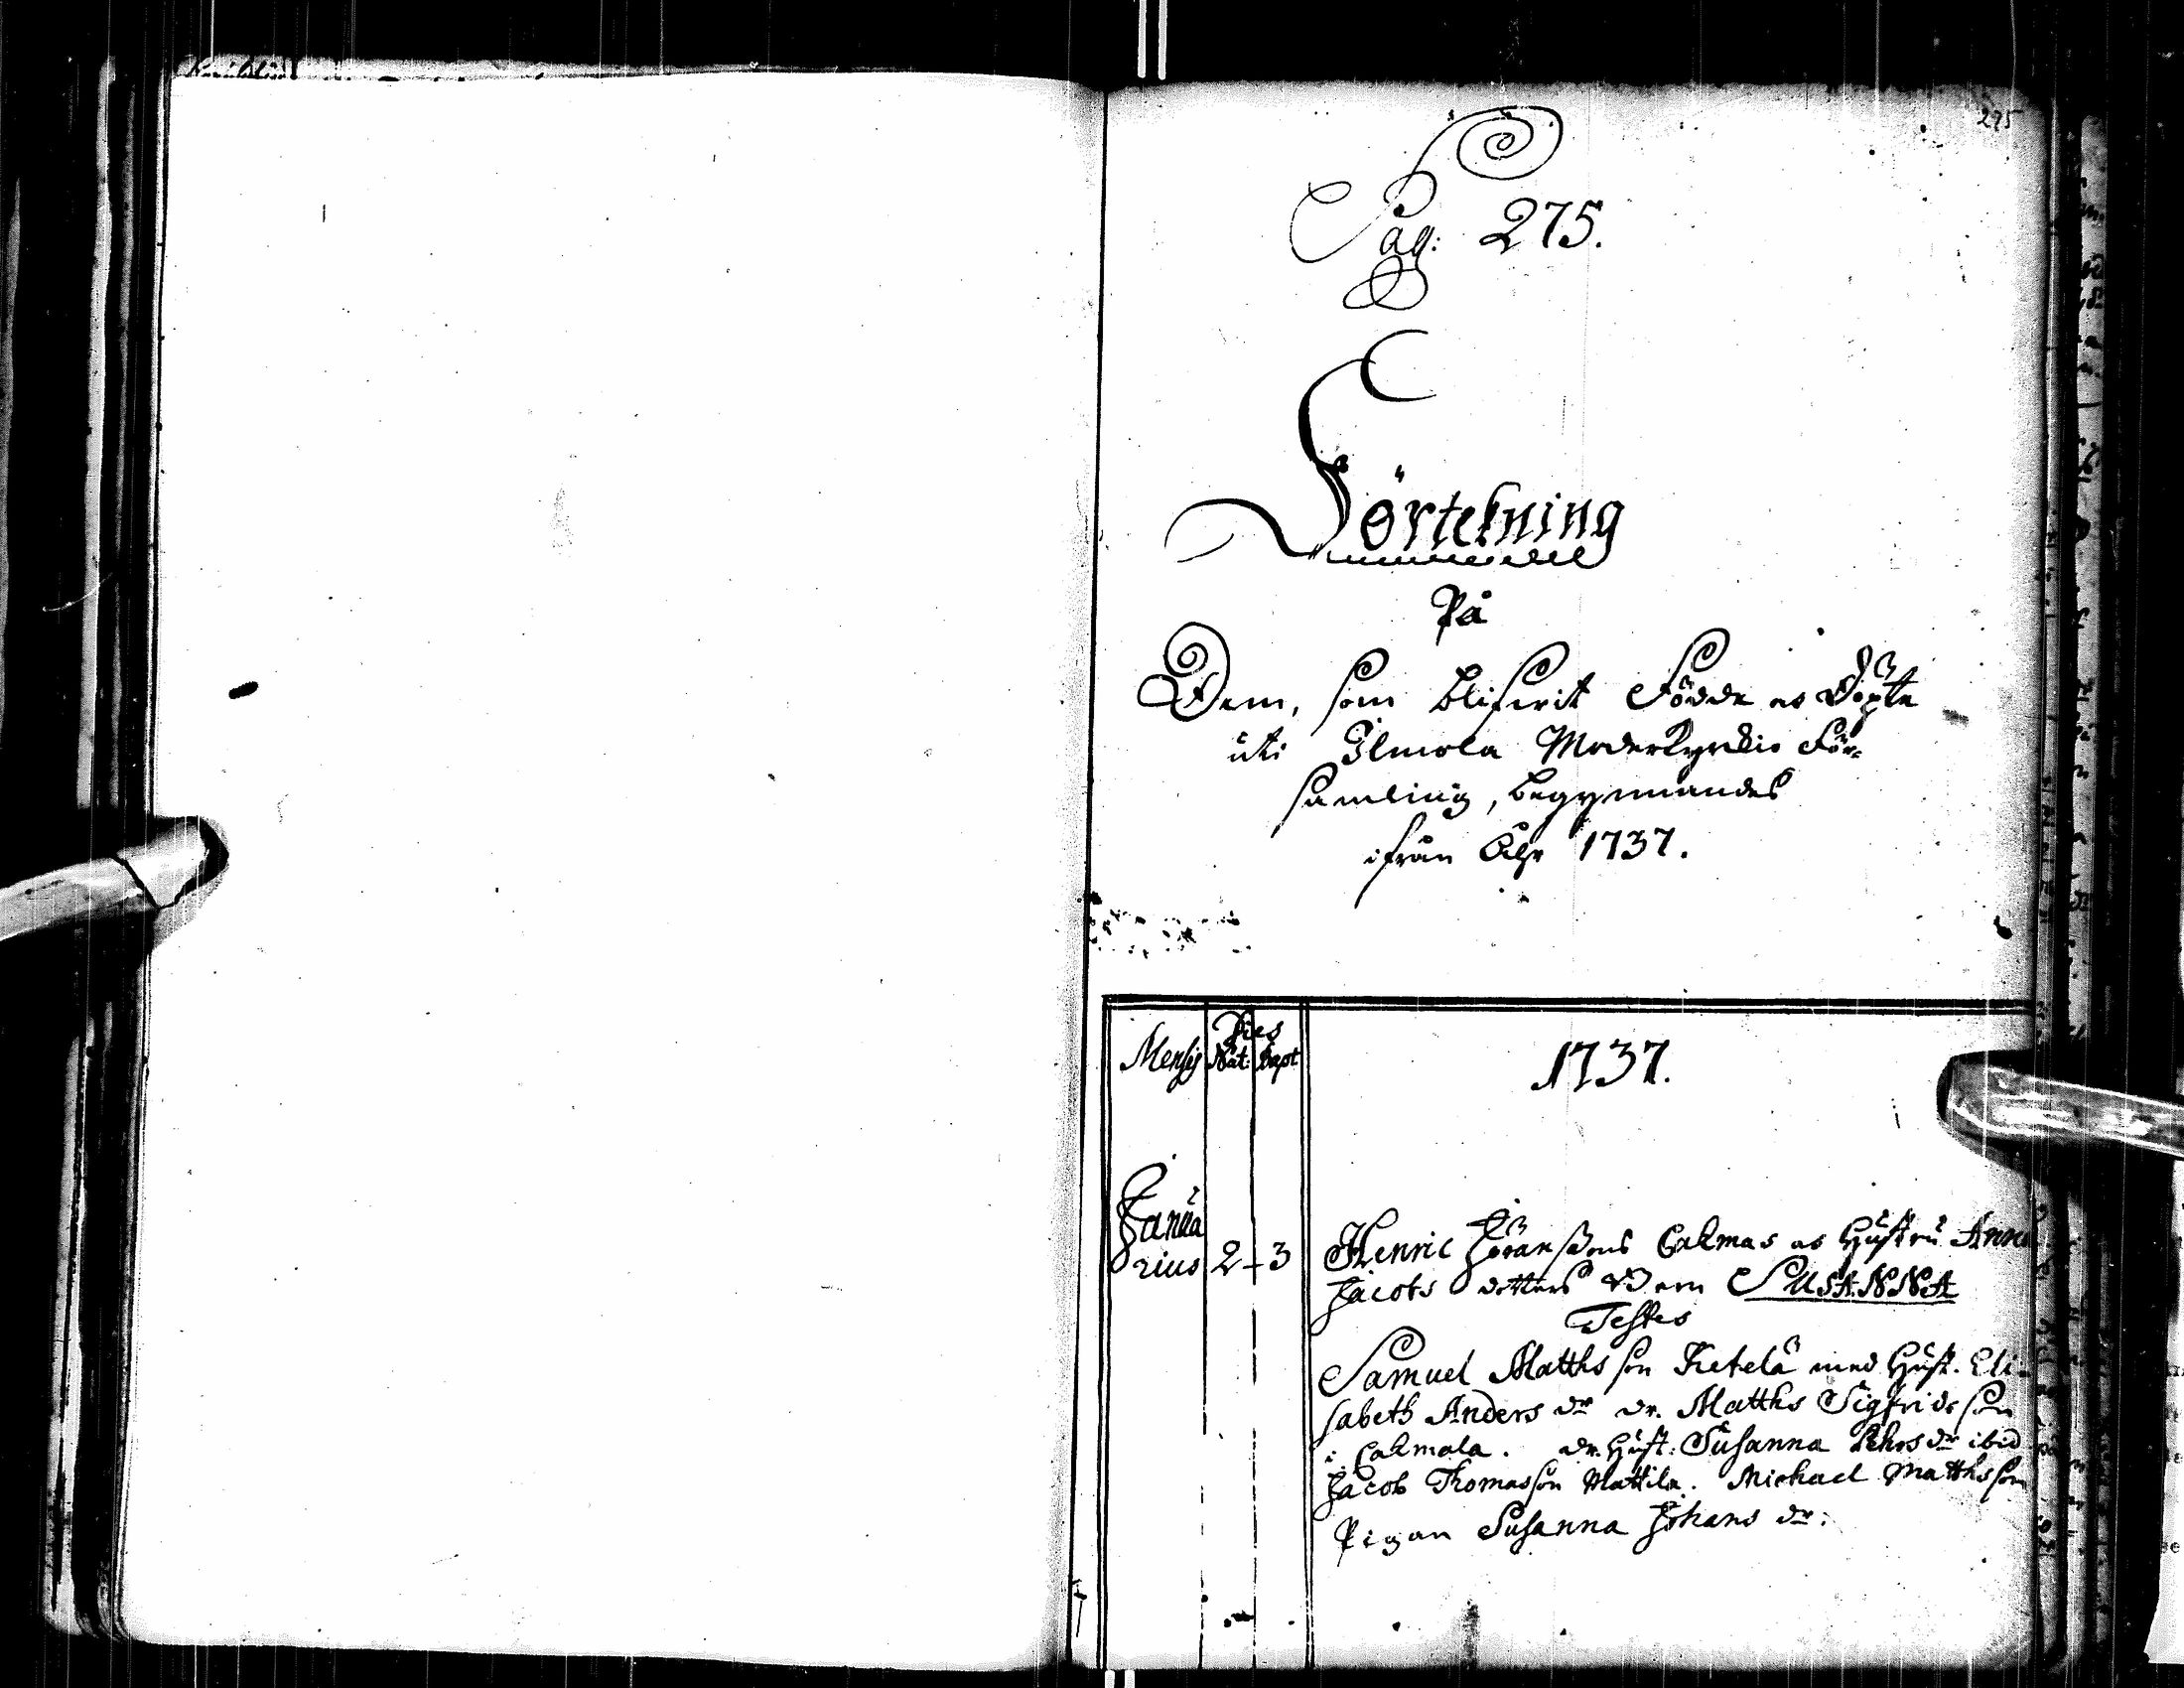 275
Pag: 275.
Förtekning
På
Dem, som blifwit Födde og Döpte
uti Ilmola Moderkyrkio För-
samling, begynnandes
ifrån Åhr 1737.
Mensis Dies Nat: Bapt
1737.
Janua
rius 2 3 Henric Jöranssons Calmas og Hustru Anna
Jacobs dotters Barn SUSANNA
Testes
Samuel Matthsson Ketelä med Hust. Eli-
sabeth Anders dr. Matths Sigfridsson
i Calmala. Hust: Susanna Ährs dr ibid
Jacob Thomasson Mattila. Michael Matthsson
Pigan Susanna Johans dr: